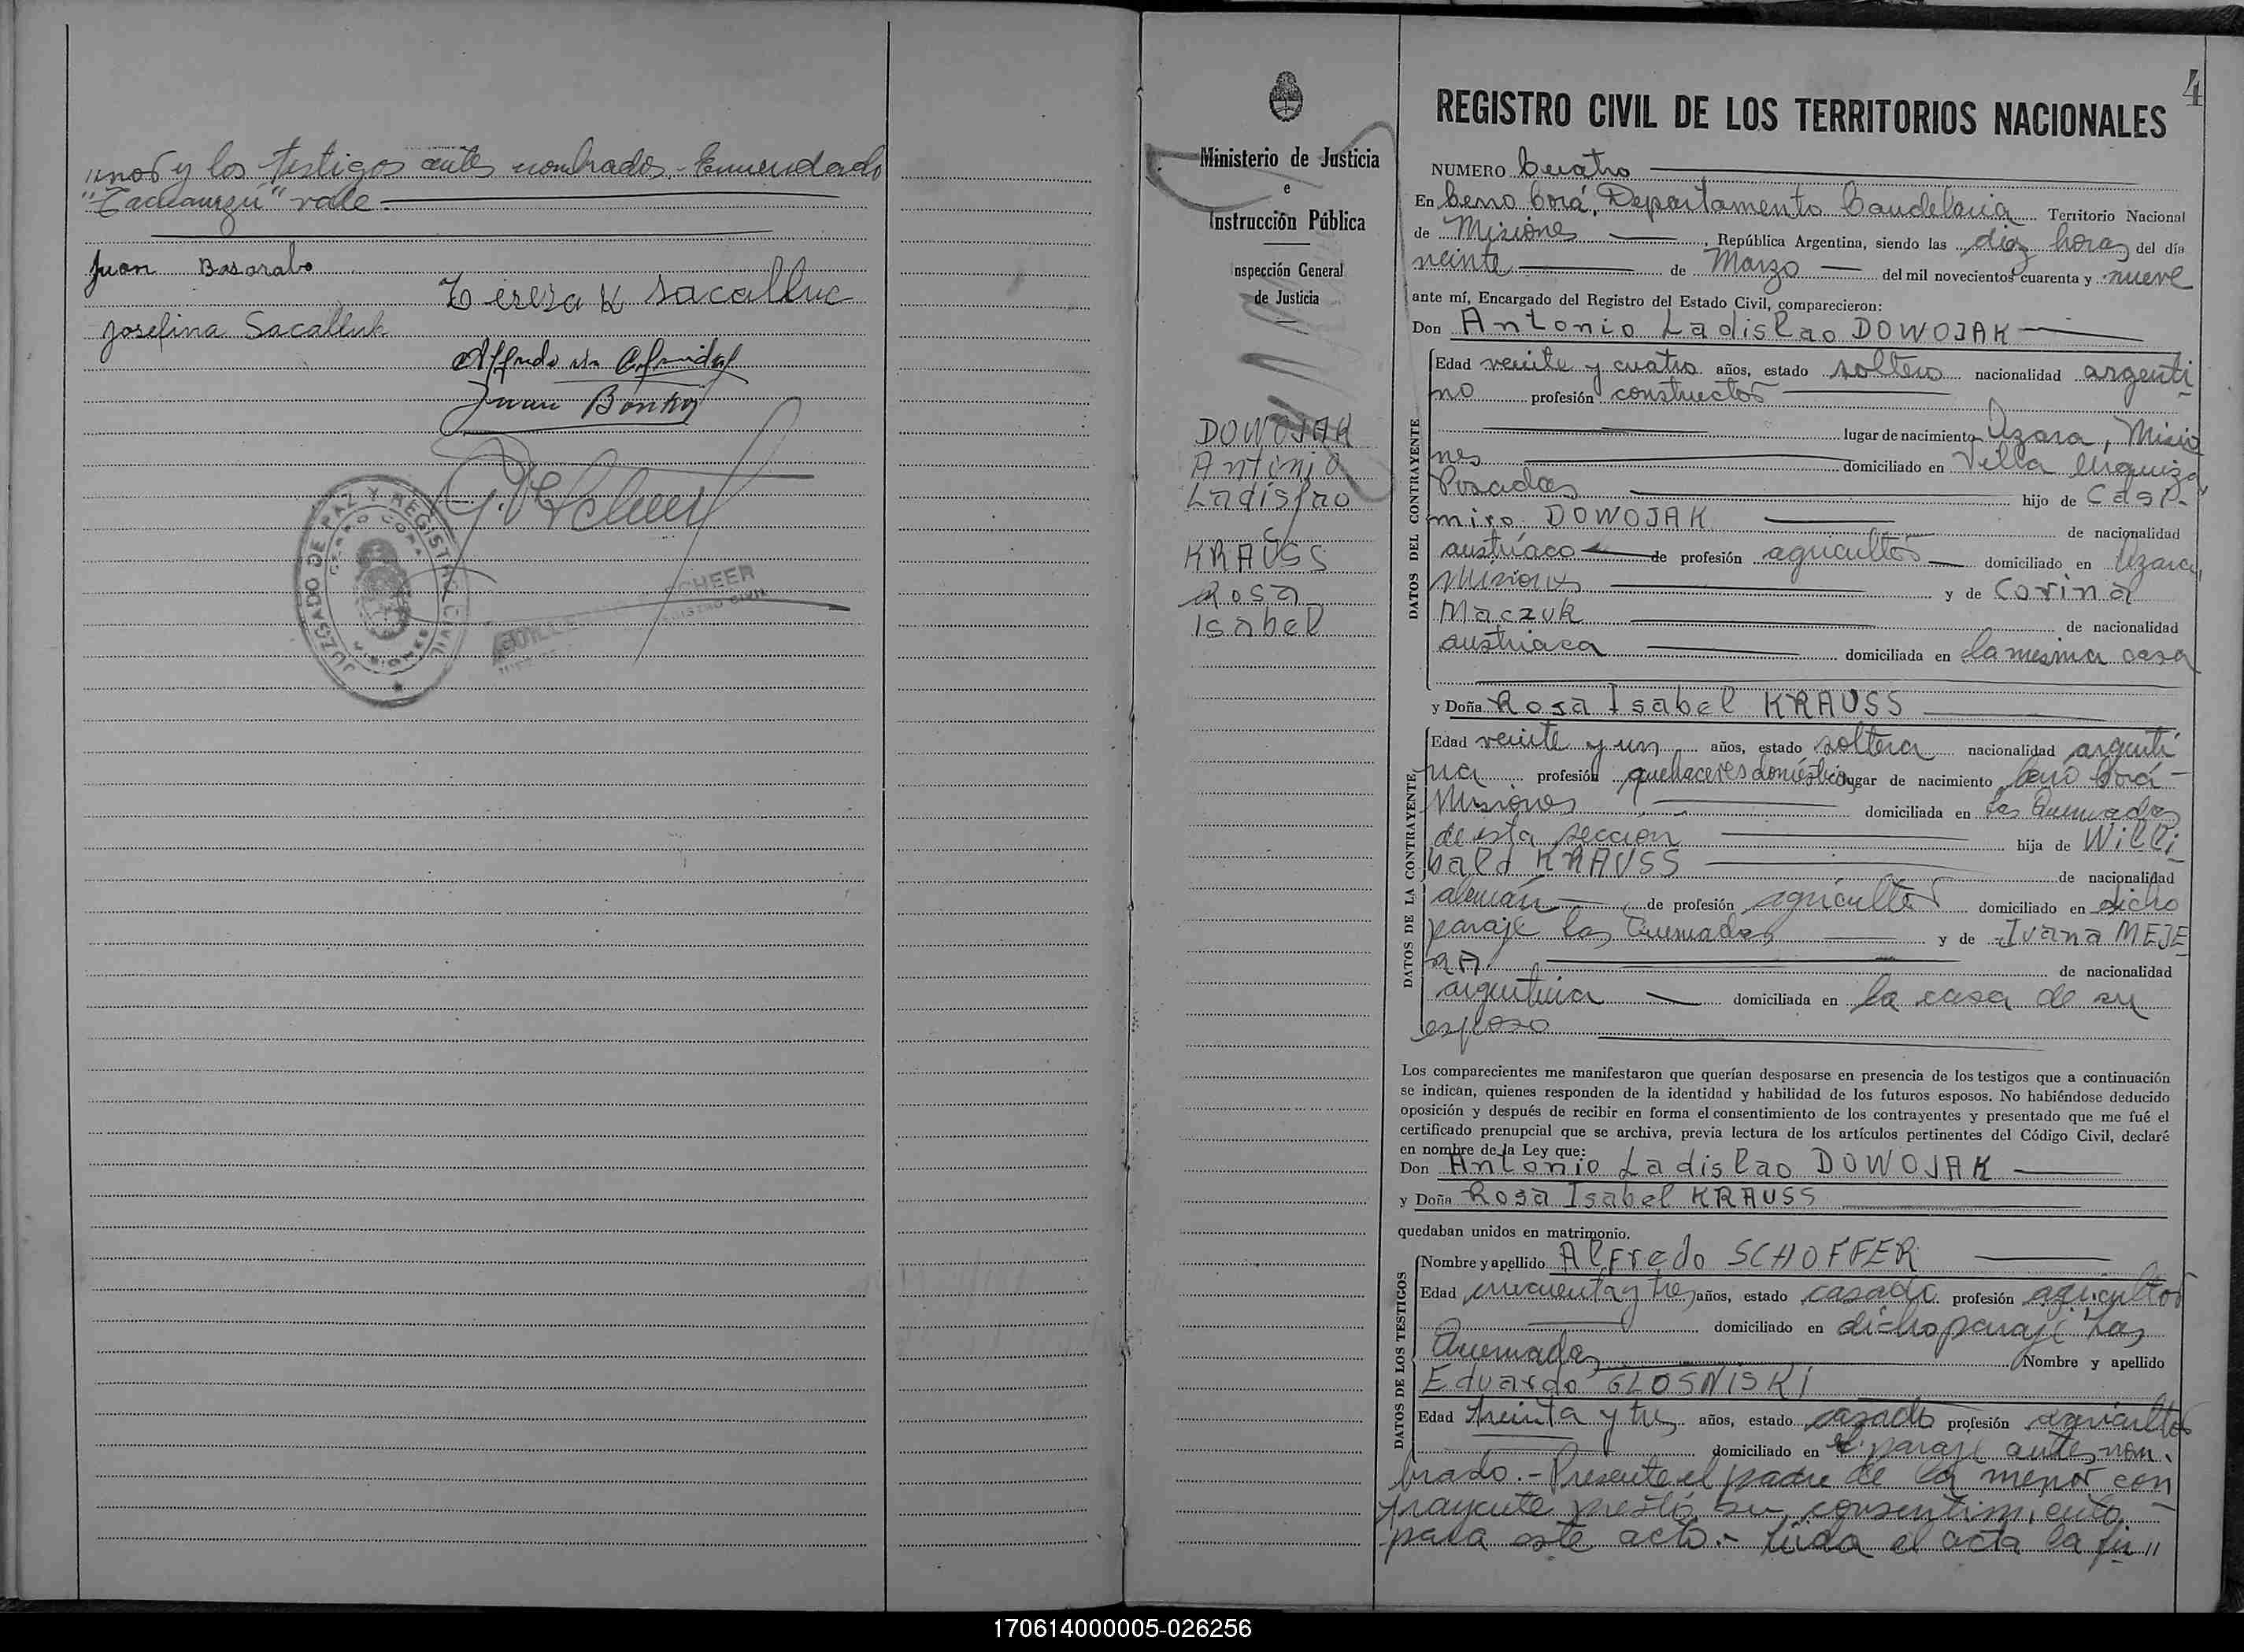 "mos y los testigos antes nombrados.- Enmendado
"Tacuaruzú" vale.
Juan Basaralo
Teresa K Sacalluc
Josefina Sacalluk
Alfredo
Juan Bonkoj
JUZGADO DE PAZ Y REGISTRO CIVIL
CERRO CORA
MISIONES
SCHEER
REGISTRO CIVIL
Ministerio de Justicia
e
Instrucción Pública
Inspección General
de Justicia
DOWOJAK
Antonio
Ladislao
y
KRAUSS
Rosa
Isabel
4
REGISTRO CIVIL DE LOS TERRITORIOS NACIONALES
NUMERO Cuatro
En Cerro Corá, Departamento Candelaria Territorio Nacional
de Misiones, República Argentina, siendo las diez horas del día
veinte de Marzo del mil novecientos cuarenta y nueve
ante mí, Encargado del Registro del Estado Civil, comparecieron:
Don Antonio Ladislao DOWOJAK
DATOS DEL CONTRAYENTE
Edad veinte y cuatro años, estado soltero nacionalidad argenti
no profesión constructor
lugar de nacimiento Azara, Misio
nes domiciliado en Villa Urquiza
Posadas hijo de Casi-
miro DOWOJAK de nacionalidad
austríaco de profesión agricultor domiciliado en Azara,
Misiones y de Corina
Maczuk de nacionalidad
austriaca domiciliada en la misma casa
y Doña Rosa Isabel KRAUSS
DATOS DE LA CONTRAYENTE
Edad veinte y un años, estado soltera nacionalidad argenti
na profesión quehaceres domésticos lugar de nacimiento Cerro Corá-
Misiones domiciliada en Las Quemadas
de esta sección hija de Willi
bald KRAUSS de nacionalidad
alemán de profesión agricultor domiciliado en dicho
paraje Las Quemadas y de Juana MEJE
RA de nacionalidad
argentina domiciliada en la casa de su
esposo
Los comparecientes me manifestaron que querían desposarse en presencia de los testigos que a continuación
se indican, quienes responden de la identidad y habilidad de los futuros esposos. No habiéndose deducido
oposición y después de recibir en forma el consentimiento de los contrayentes y presentado que me fué el
certificado prenupcial que se archiva, previa lectura de los artículos pertinentes del Código Civil, declaré
en nombre de la Ley que:
Don Antonio Ladislao DOWOJAK
y Doña Rosa Isabel KRAUSS
quedaban unidos en matrimonio.
DATOS DE LOS TESTIGOS
Nombre y apellido Alfredo SCHOFFER
Edad cincuenta y tres años, estado casado profesión agricultor
domiciliado en dicho paraje Las
Quemadas Nombre y apellido
Eduardo GLOSNISKI
Edad treinta y tres años, estado casado profesión agricultor
domiciliado en el paraje antes nom
brado.- Presente el padre de la menor con
trayente prestó su consentimiento
para este acto.- Leída el acta la fir"
170614000005-026256